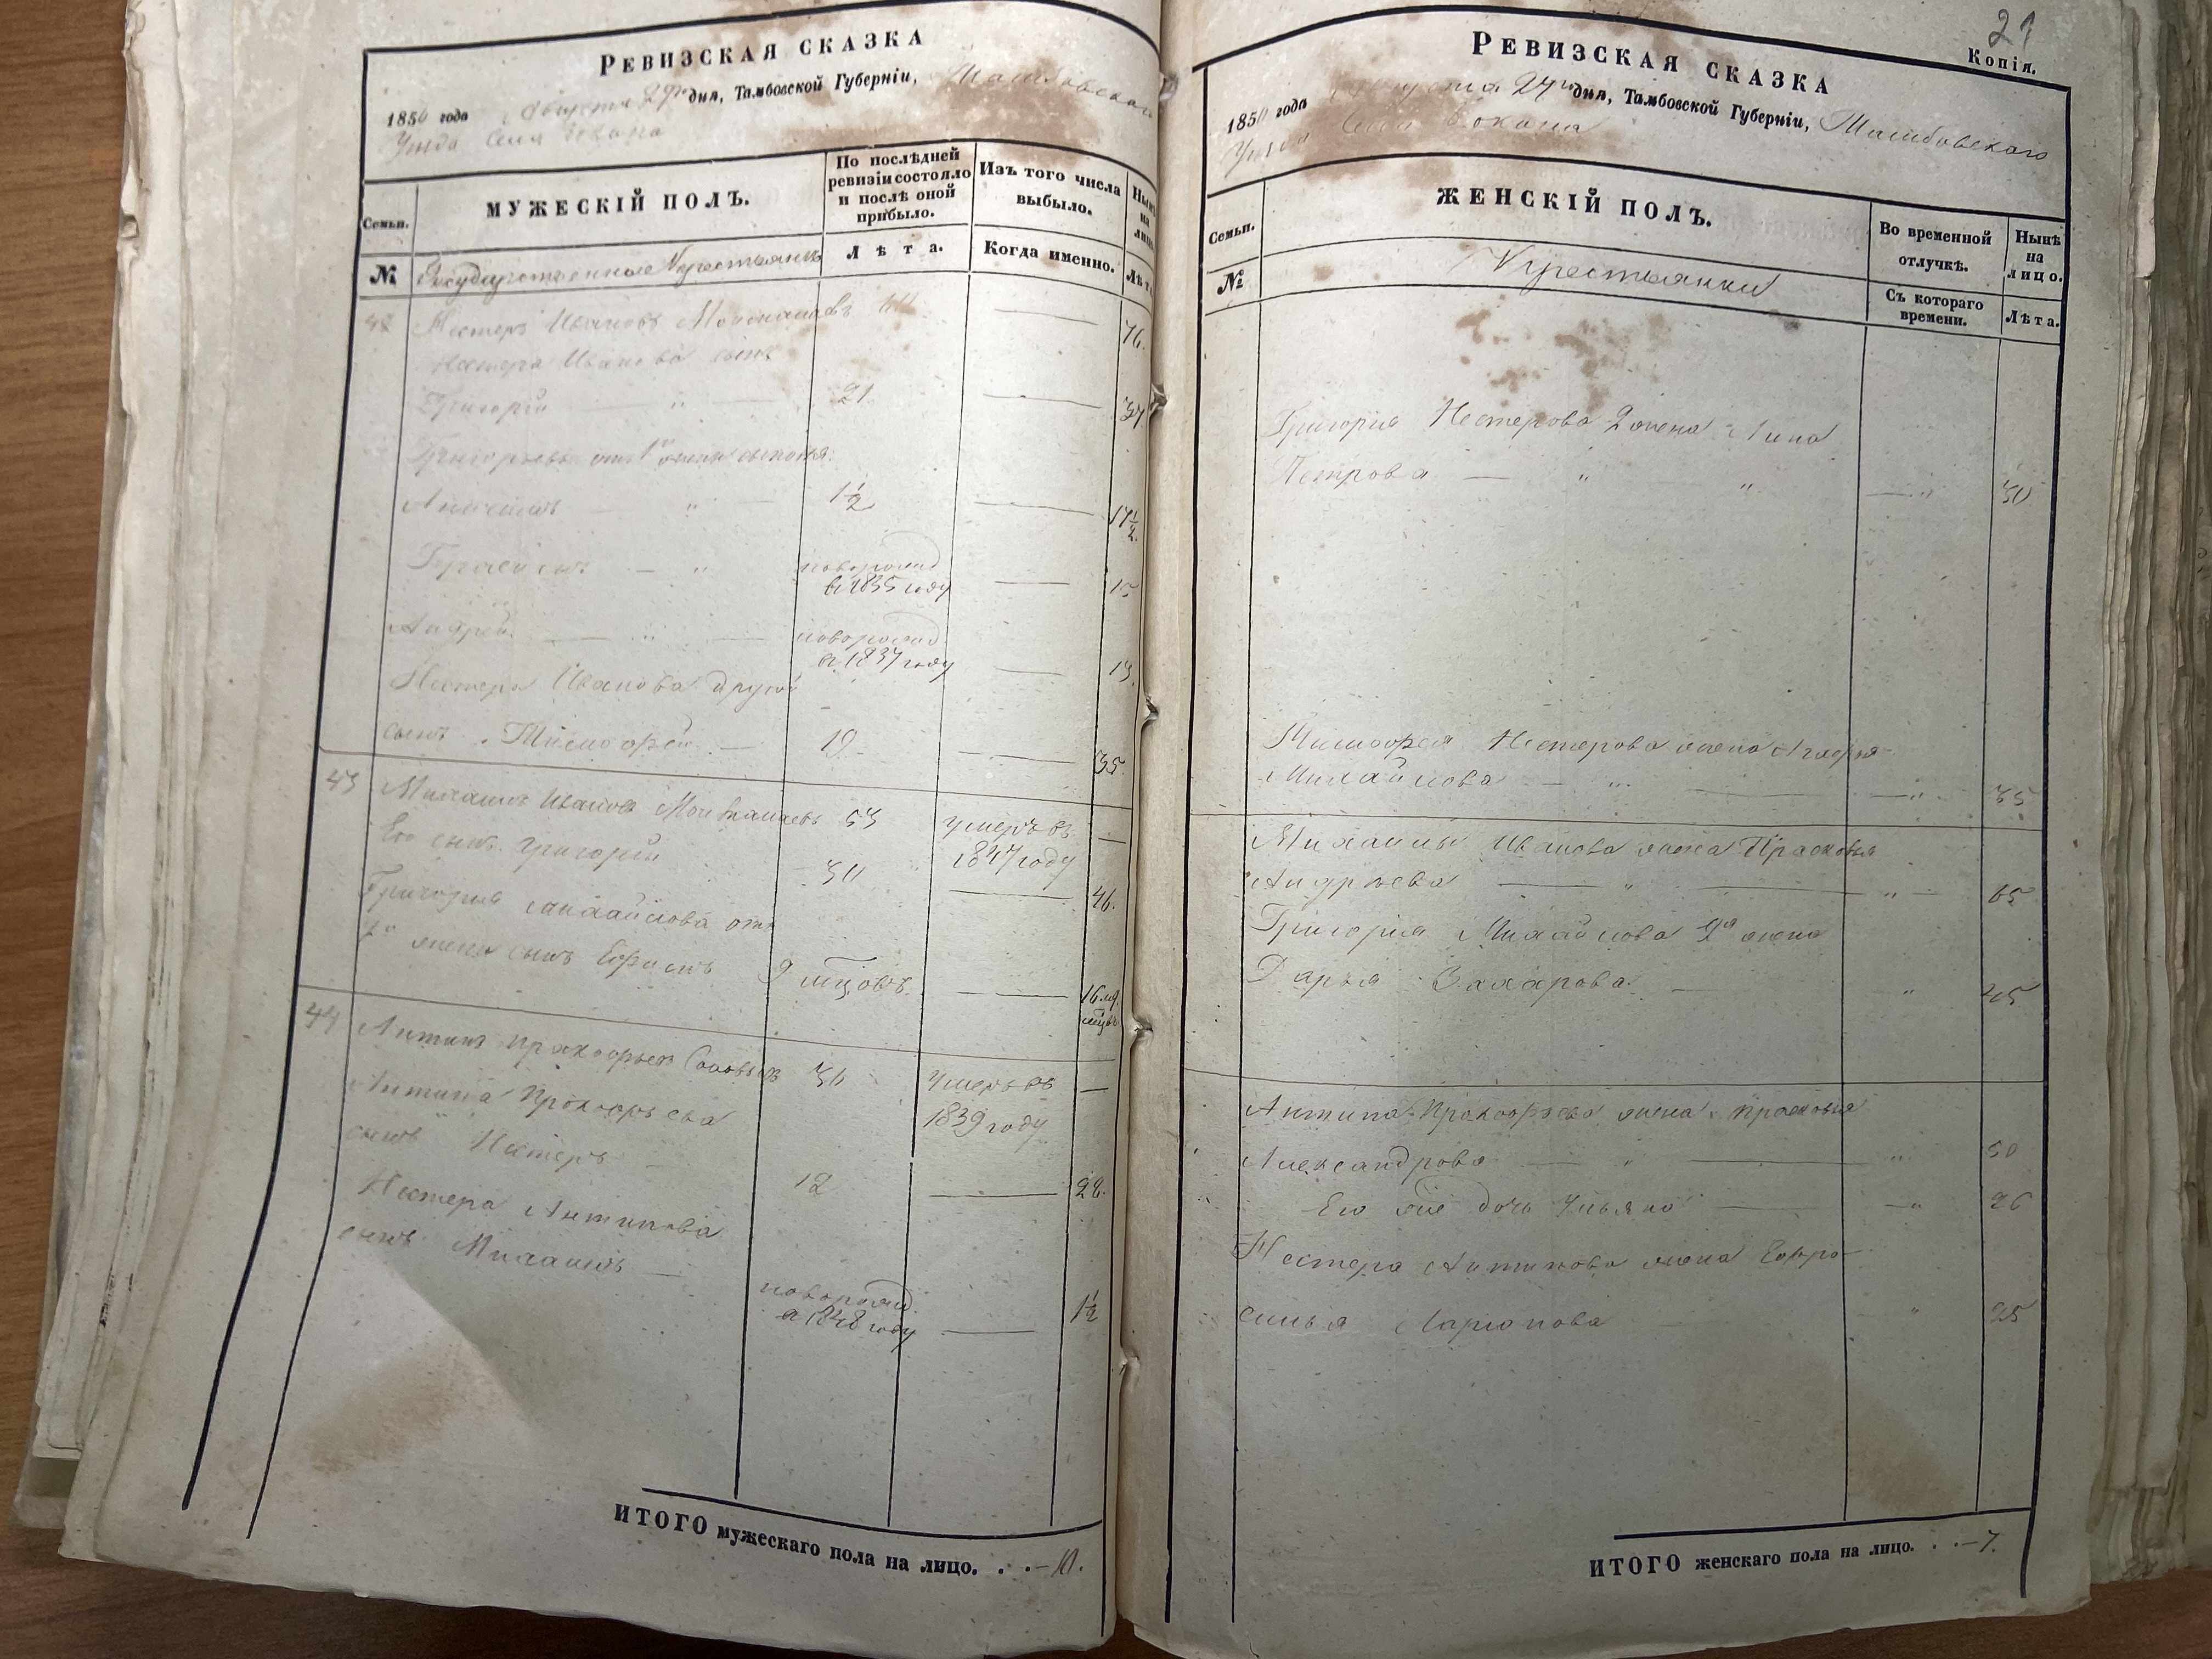 РЕВИЗСКАЯ СКАЗКА
1850 года Августа 29го дня, Тамбовской Губерніи, Тамбовскаго
Уѣзда Села
Семьи.
МУЖЕСКІЙ ПОЛЪ.
По послѣдней ревизіи состояло и послѣ оной прибыло.
Изъ того числа выбыло.
Нынѣ на лицо
№
Государственные Крестьяне
Лѣта.
Когда именно.
Лѣта
42 Нестеръ Ивановъ 76.
Нестера Иванова сынъ
Григорій — " — 21 — 37
Григорьевы отъ 1й жены сыновья:
" 1½ — 17½
— " новорожд в 1835 году — 15
Андрей — " — новорожд в 1837 году — 13.
Нестера Иванова другой
сынъ Тимофей — 19 — 35.
43 Михаилъ Ивановъ 53 умеръ въ 1847 году —
Его сынъ Григорій 30 — 46.
Григорія Михайлова отъ
жены сынъ Ефимъ 9 мцовъ — 16 мцвъ
44 Антипъ Прокофьевъ 36 умеръ въ 1839 году —
Антипа Прокофьева
сынъ Нестеръ — 12 — 28.
Нестера Антипова
сынъ Михаилъ — новорожд в 1848 году — 1½
ИТОГО мужескаго пола на лицо. . . — 10.
21
Копія.
РЕВИЗСКАЯ СКАЗКА
1850 года Августа 29го дня, Тамбовской Губерніи, Тамбовскаго
Уѣзда Села
Семьи.
ЖЕНСКІЙ ПОЛЪ.
Во временной отлучкѣ.
Нынѣ на лицо.
№
Крестьянки
Съ котораго времени.
Лѣта.
Григорія Нестерова 2 жена
Петрова — " " — " 30
Тимофея Нестерова жена
Михайлова — " — — " 35
Михаилы Иванова жена Прасковья
Андрѣева — " — " — 65
Григорія Михайлова 2я жена
Дарья Захарова. — " 45
Антипа Прокофьева жена Прасковья
Александрова — " — " 50
Его же дочь Ульяна — — " 26
Нестера Антипова жена Ефро-
синья Ларионова " 25
ИТОГО женскаго пола на лицо. . . — 7.